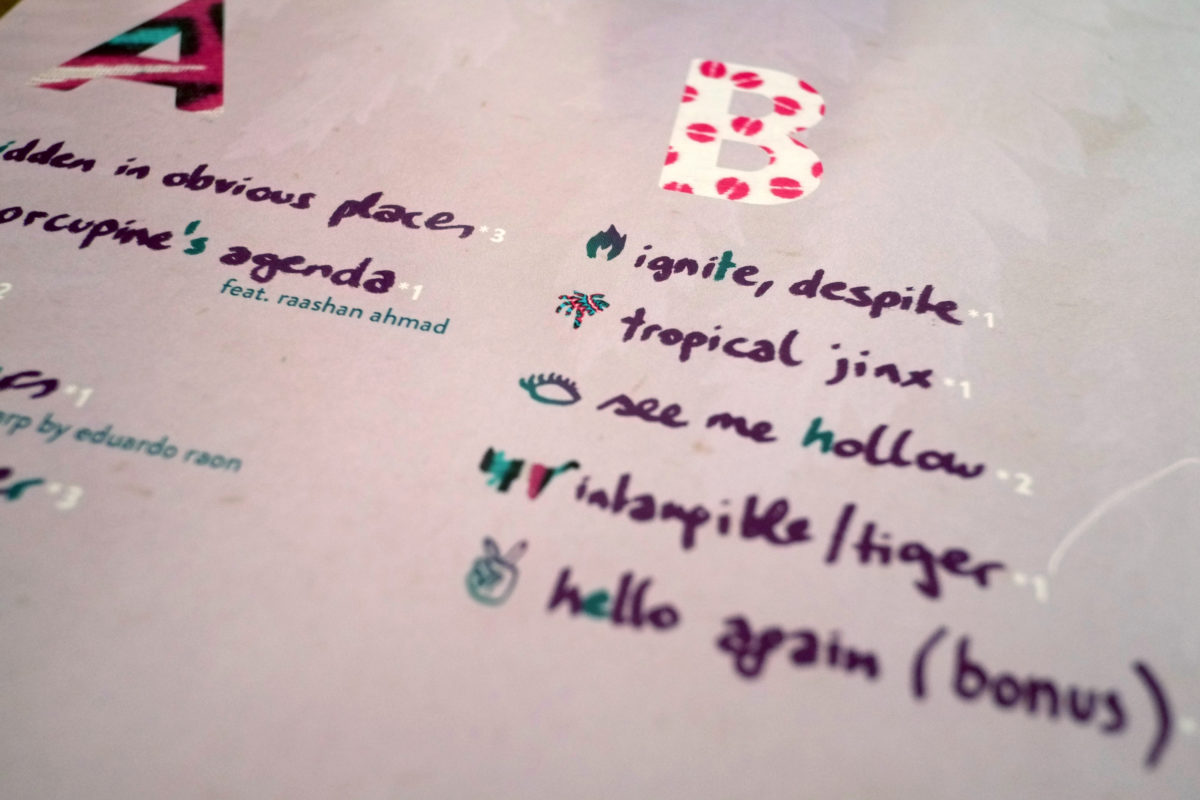 A
idden in obvious places *3
orcupine's agenda *1
feat. raashan ahmad
2
cs *1
arp by eduardo raon
er *3
B
ignite, despite *1
tropical jinx *1
see me hollow *2
intangible/tiger *1
hello again (bonus)